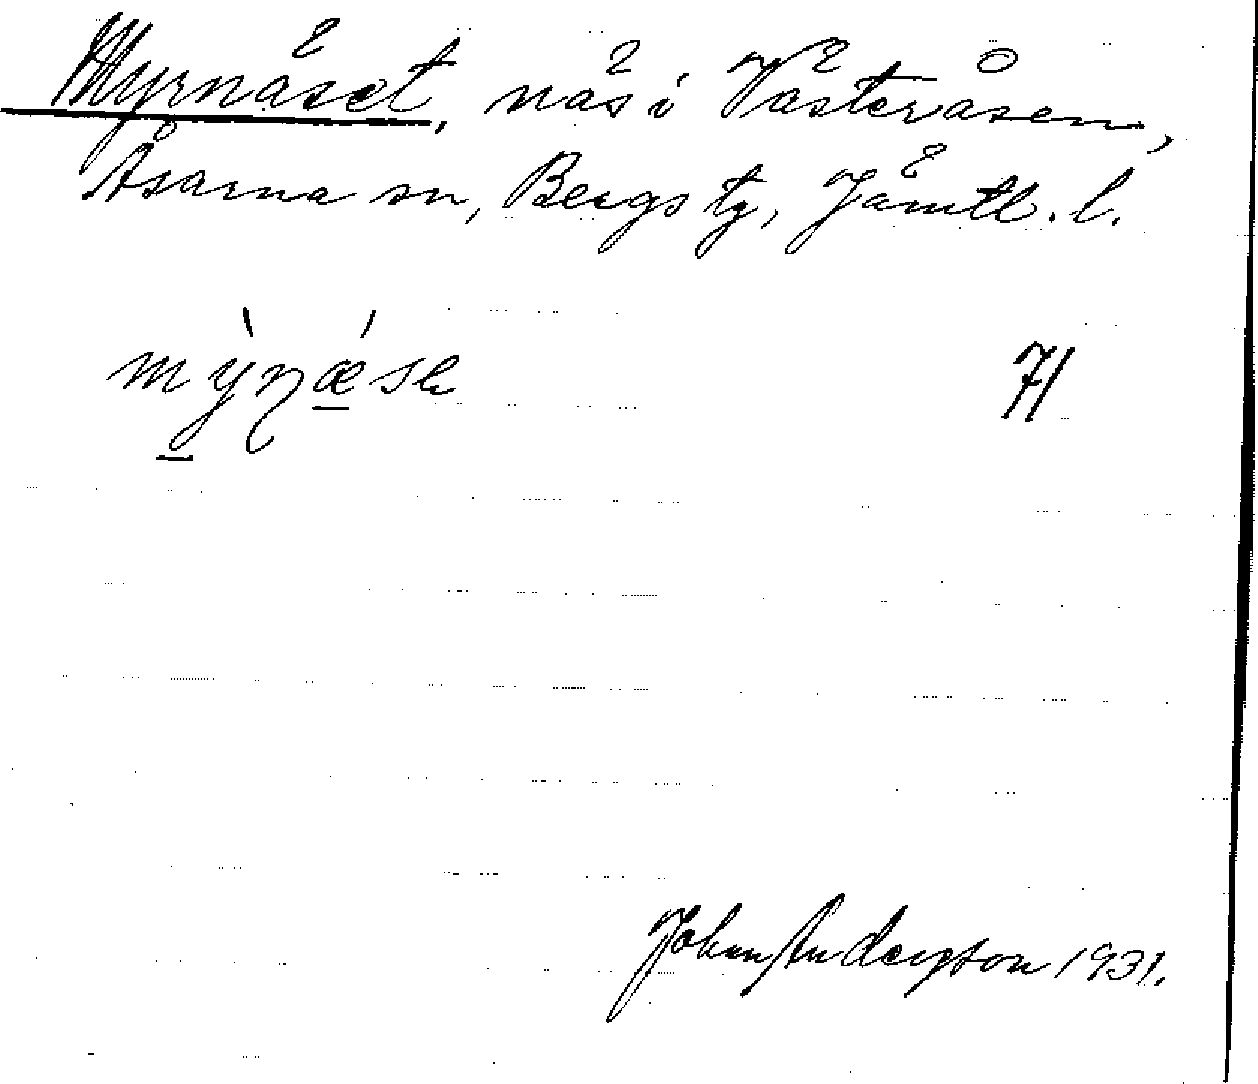 Myrnäset, näs i Västeråsen,
Åsarna sn, Bergs tg, Jämtl. l.
71
John Andersson 1931.